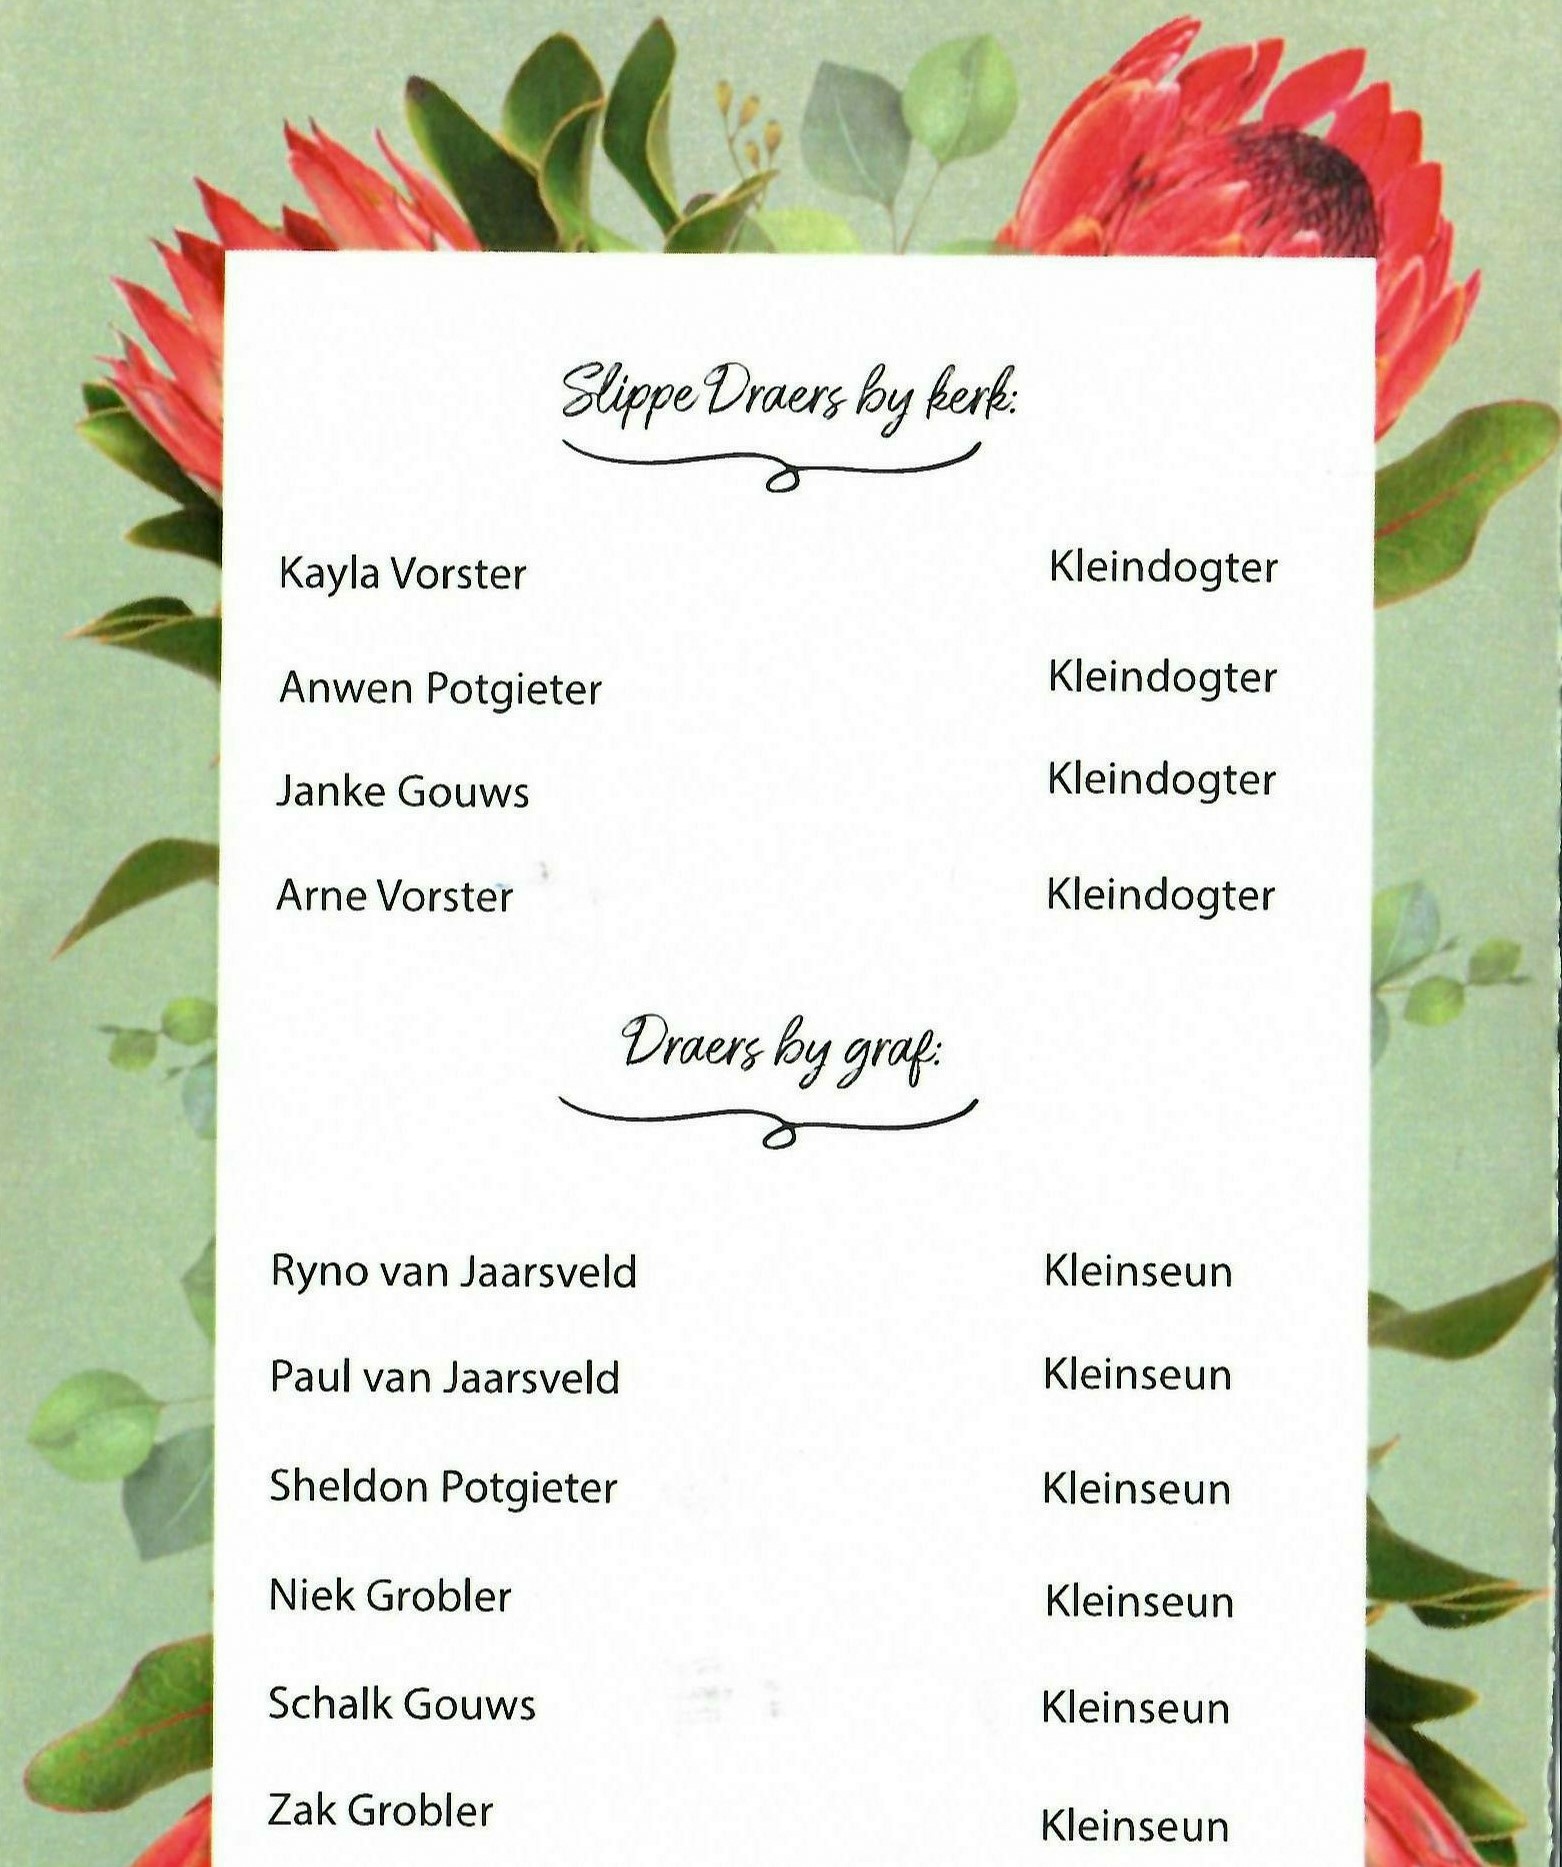 Slippe Draers by kerk:
Kayla Vorster Kleindogter
Anwen Potgieter Kleindogter
Janke Gouws Kleindogter
Arne Vorster Kleindogter
Draers by graf:
Ryno van Jaarsveld Kleinseun
Paul van Jaarsveld Kleinseun
Sheldon Potgieter Kleinseun
Niek Grobler Kleinseun
Schalk Gouws Kleinseun
Zak Grobler Kleinseun